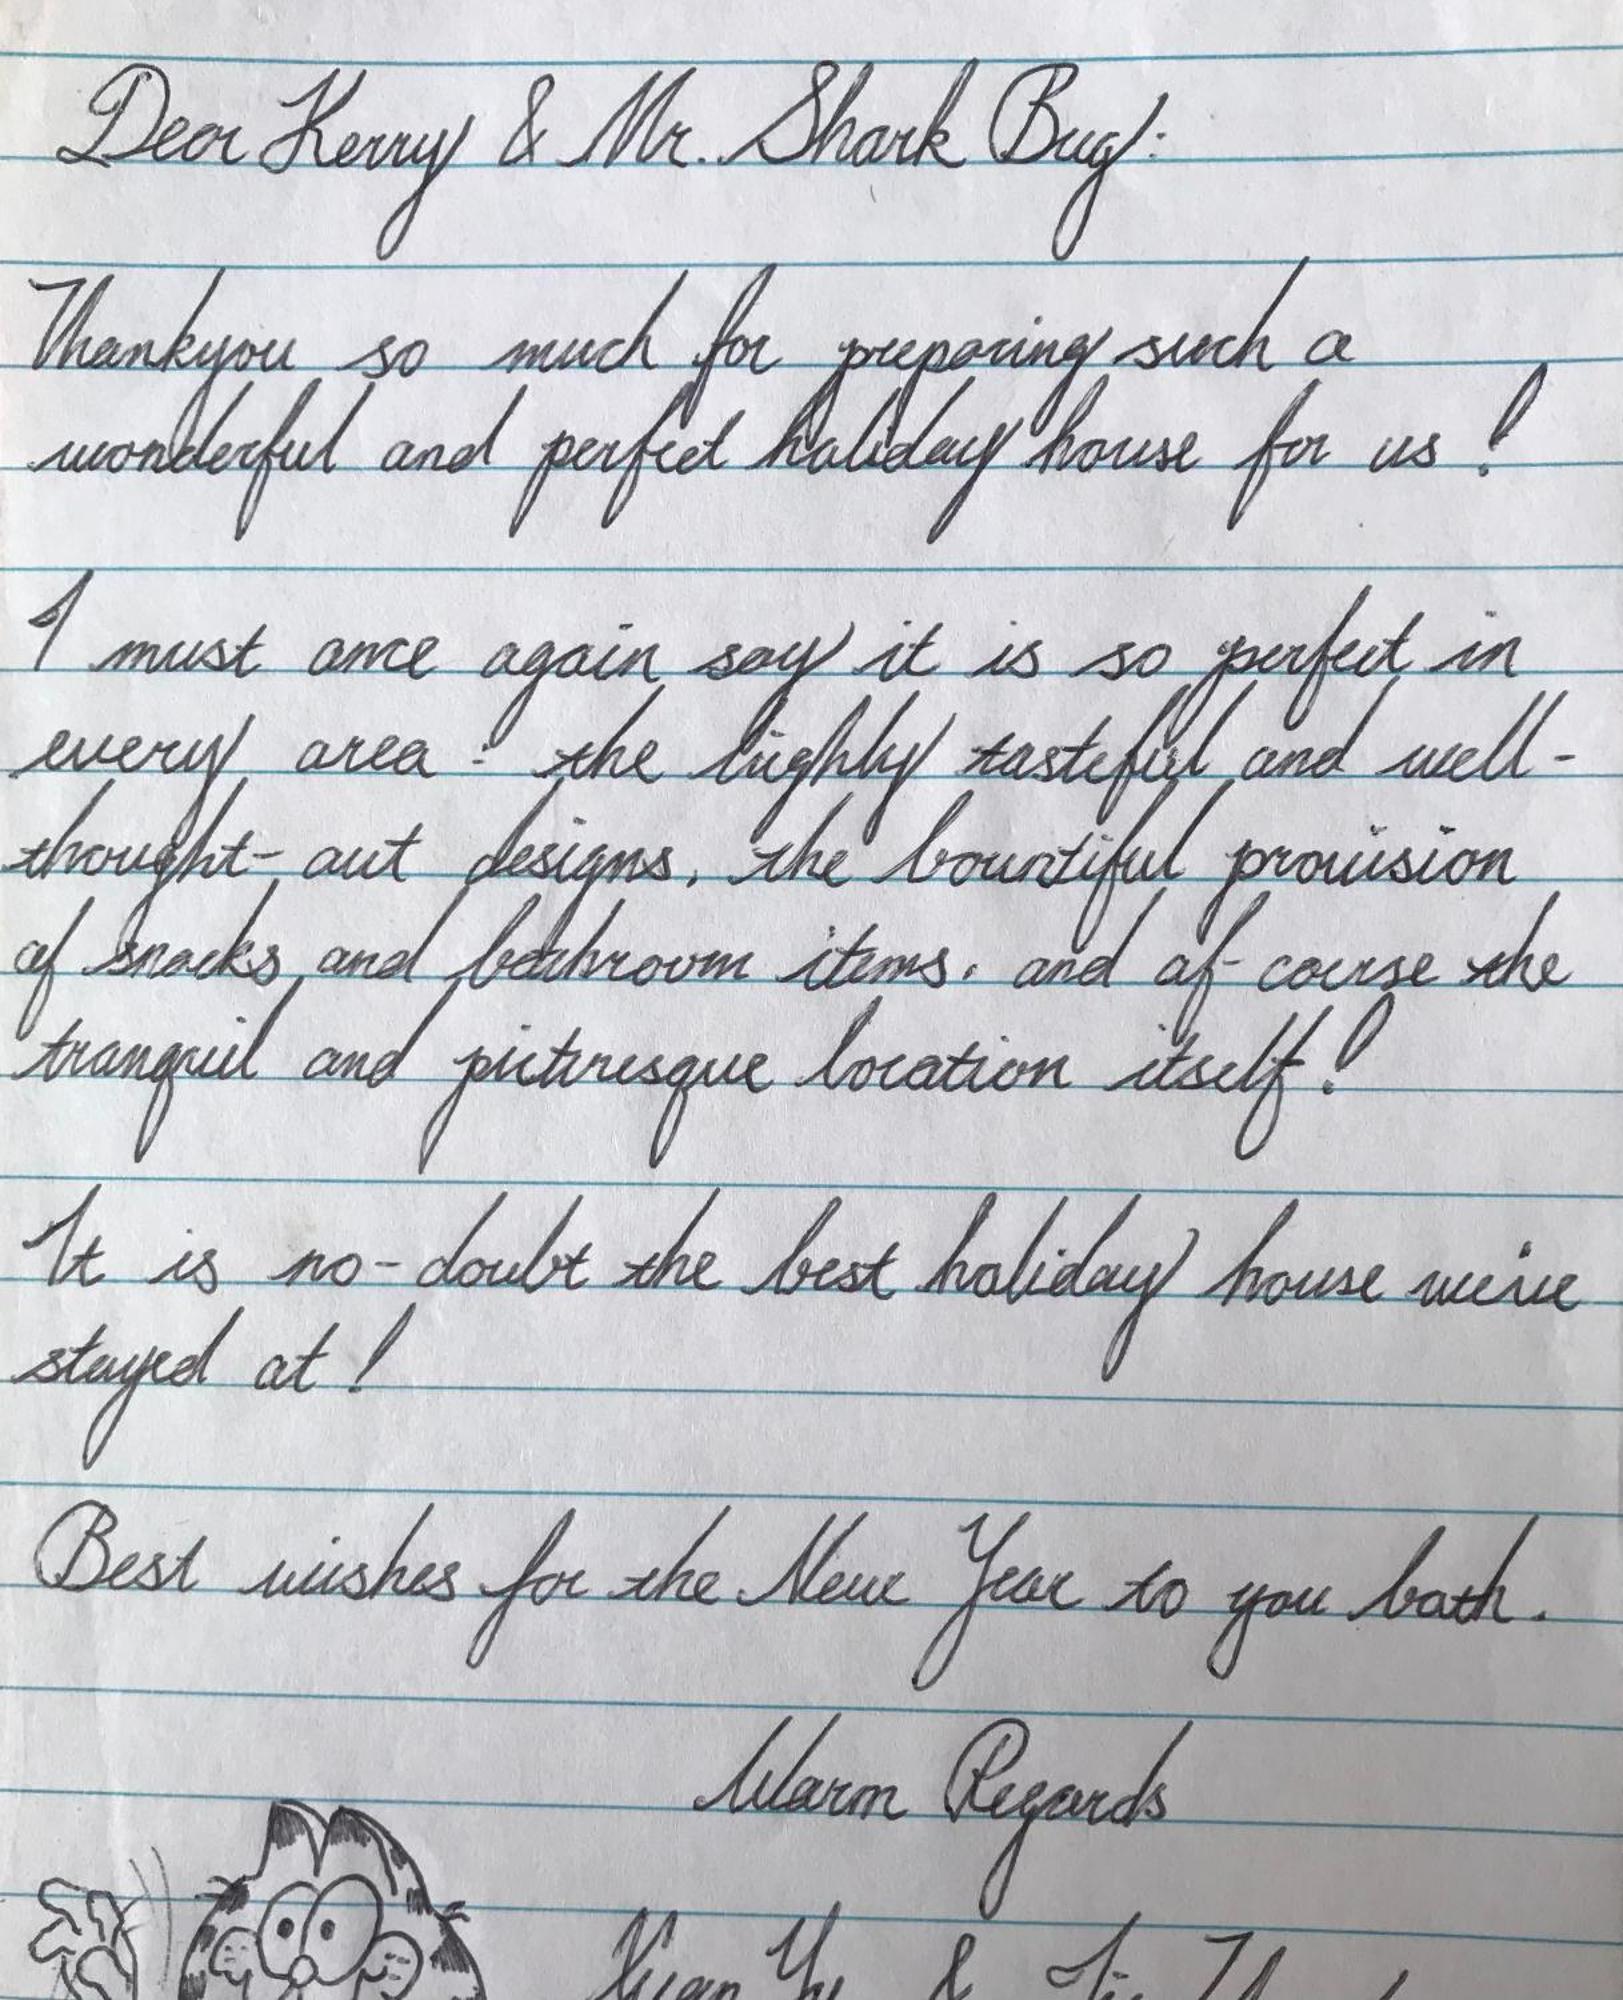 Dear Kerry & Mr. Shark Bug:
Thankyou so much for preparing such a
wonderful and perfect holiday house for us!
I must once again say it is so perfect in
every area: the highly tasteful and well-
thought-out designs, the bountiful provision
of snacks and bathroom items, and of-course the
tranquil and picturesque location itself!
It is no-doubt the best holiday house we've
stayed at!
Best wishes for the New Year to you both.
Warm Regards
Xuan Yu &